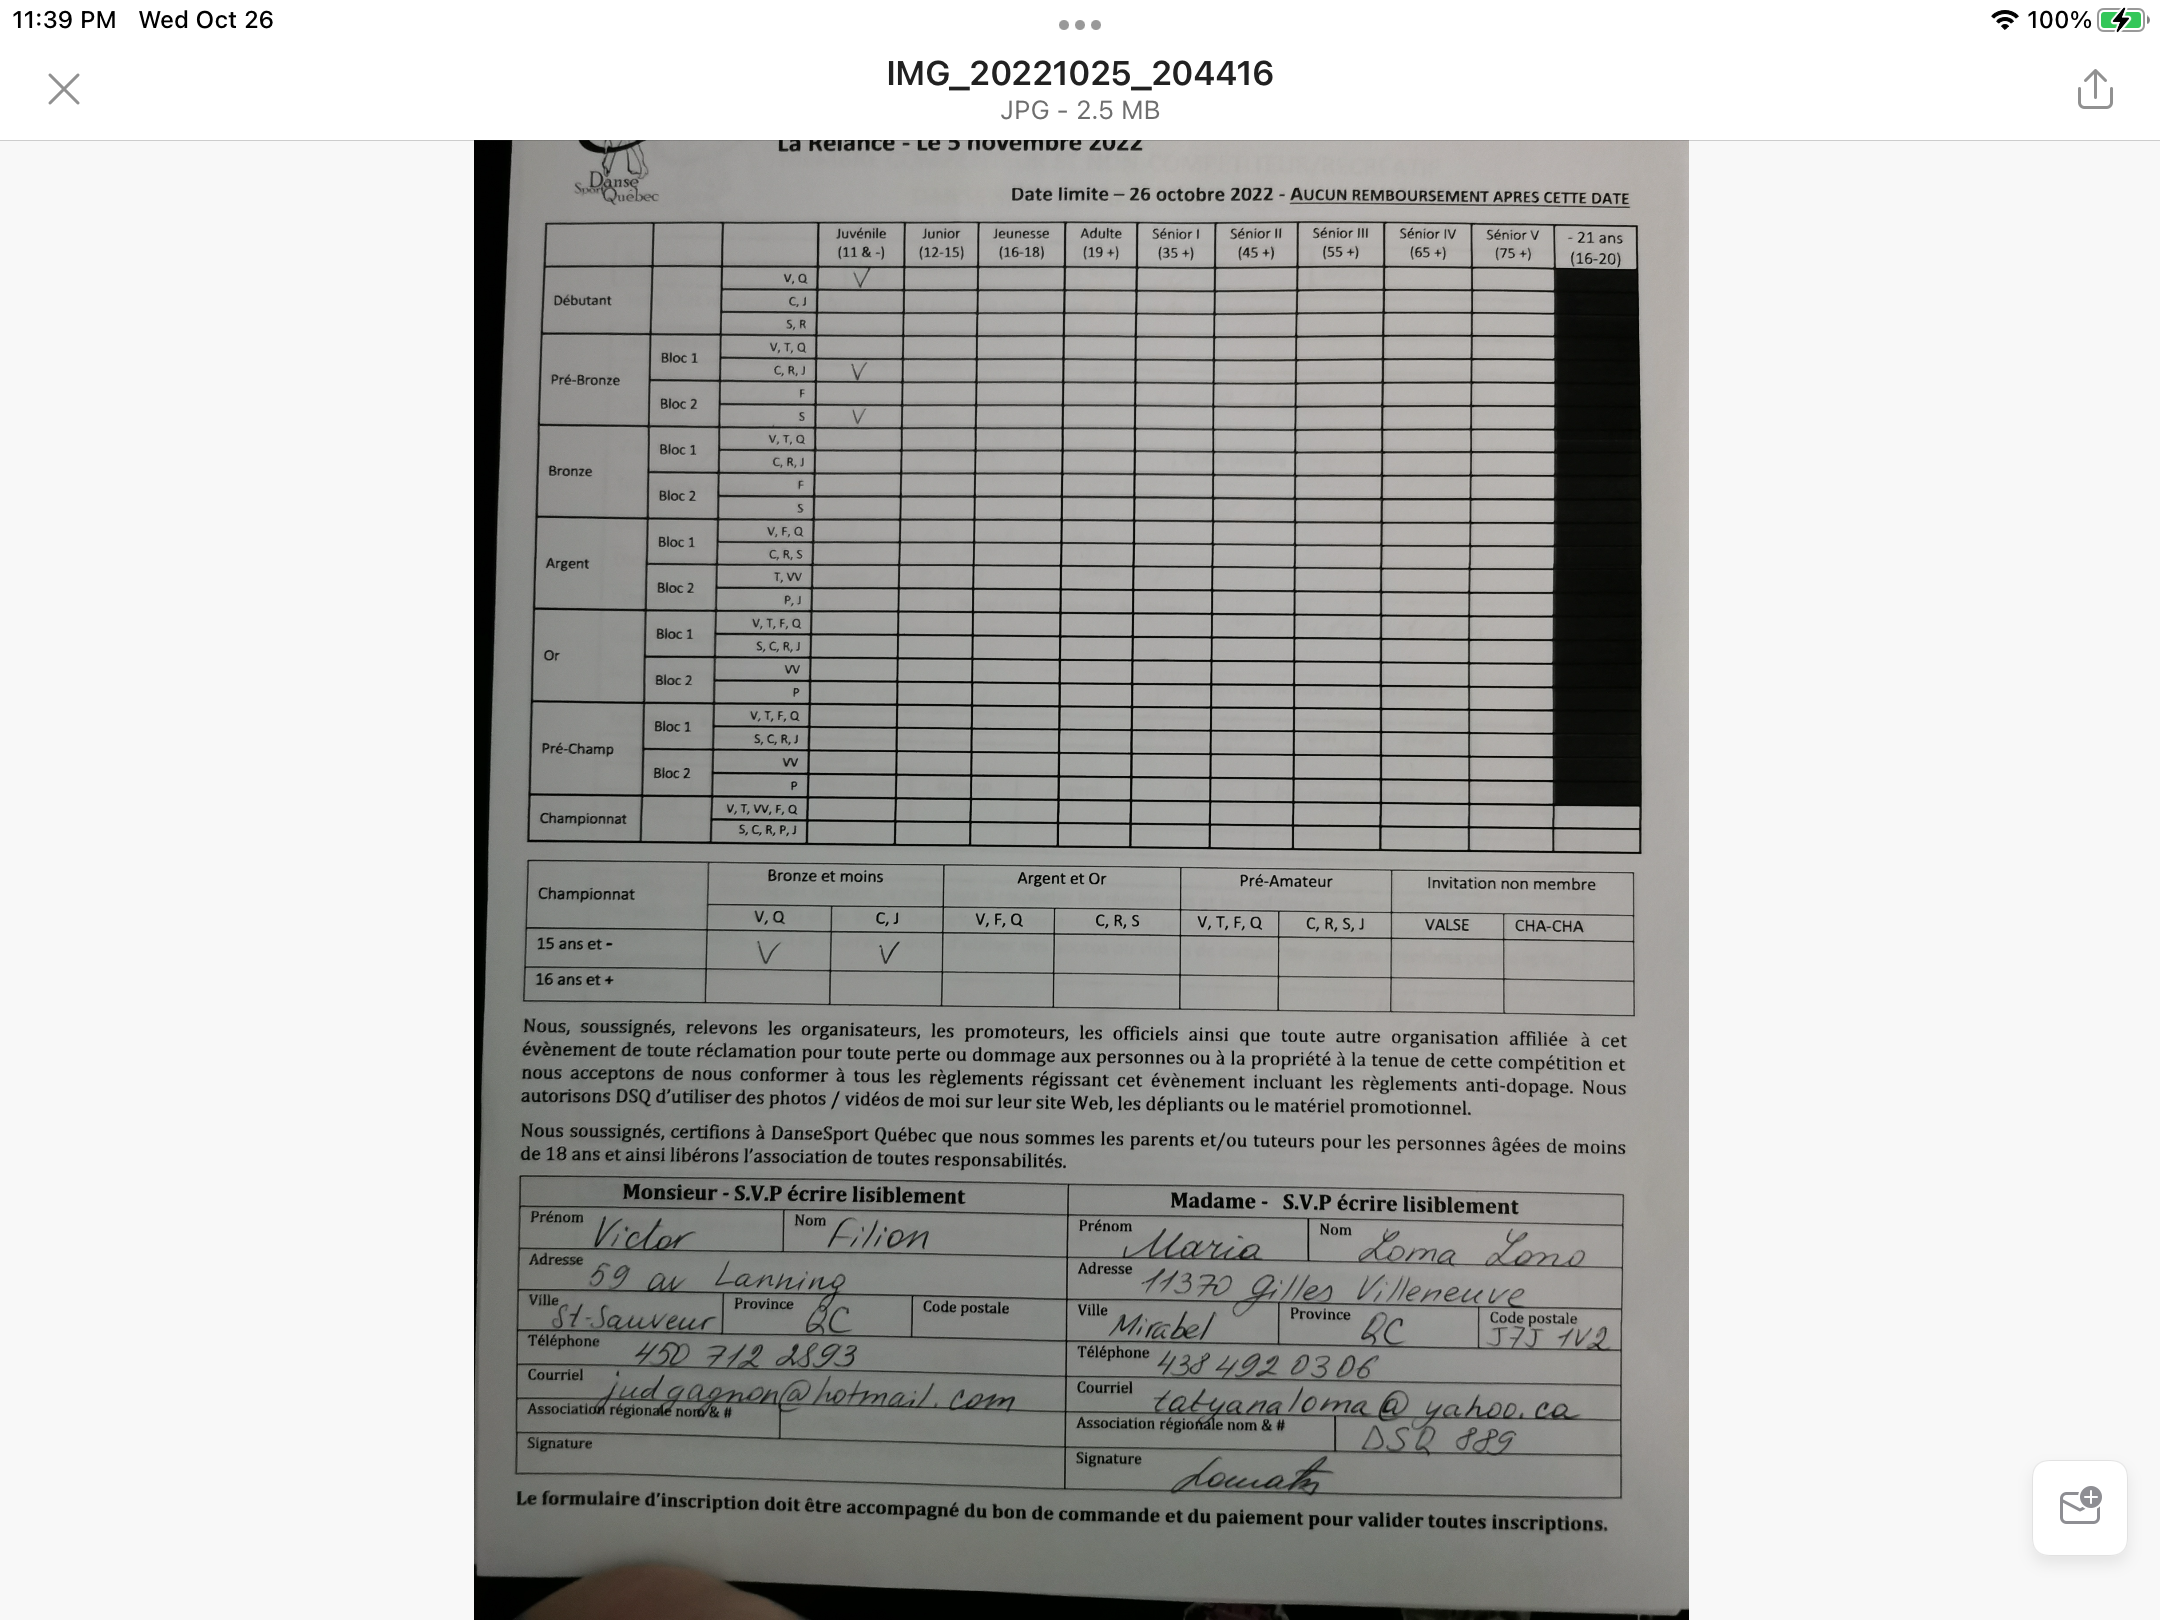 11:39 PM Wed Oct 26
100%
IMG_20221025_204416
JPG - 2.5 MB
La Relance - Le 5 novembre 2022
Danse
Sport Québec
Date limite – 26 octobre 2022 - AUCUN REMBOURSEMENT APRES CETTE DATE
Juvénile Junior Jeunesse Adulte Sénior I Sénior II Sénior III Sénior IV Sénior V - 21 ans
(11 & -) (12-15) (16-18) (19 +) (35 +) (45 +) (55 +) (65 +) (75 +) (16-20)
Débutant
V, Q V
C, J
S, R
Pré-Bronze
Bloc 1
V, T, Q
C, R, J V
Bloc 2
F
S V
Bronze
Bloc 1
V, T, Q
C, R, J
Bloc 2
F
S
Argent
Bloc 1
V, F, Q
C, R, S
Bloc 2
T, VV
P, J
Or
Bloc 1
V, T, F, Q
S, C, R, J
Bloc 2
VV
P
Pré-Champ
Bloc 1
V, T, F, Q
S, C, R, J
Bloc 2
VV
P
Championnat
V, T, VV, F, Q
S, C, R, P, J
Championnat Bronze et moins Argent et Or Pré-Amateur Invitation non membre
V, Q C, J V, F, Q C, R, S V, T, F, Q C, R, S, J VALSE CHA-CHA
15 ans et - V V
16 ans et +
Nous, soussignés, relevons les organisateurs, les promoteurs, les officiels ainsi que toute autre organisation affiliée à cet
évènement de toute réclamation pour toute perte ou dommage aux personnes ou à la propriété à la tenue de cette compétition et
nous acceptons de nous conformer à tous les règlements régissant cet évènement incluant les règlements anti-dopage. Nous
autorisons DSQ d'utiliser des photos / vidéos de moi sur leur site Web, les dépliants ou le matériel promotionnel.
Nous soussignés, certifions à DanseSport Québec que nous sommes les parents et/ou tuteurs pour les personnes âgées de moins
de 18 ans et ainsi libérons l'association de toutes responsabilités.
Monsieur - S.V.P écrire lisiblement
Prénom Victor Nom Filion
Adresse 59 av Lanning
Ville St-Sauveur Province QC Code postale
Téléphone 450 712 2893
Courriel judgagnon@hotmail.com
Association régionale nom & #
Signature
Madame - S.V.P écrire lisiblement
Prénom Maria Nom Loma Lono
Adresse 11370 Gilles Villeneuve
Ville Mirabel Province QC Code postale J7J 1V2
Téléphone 438 492 0306
Courriel tatyanaloma@yahoo.ca
Association régionale nom & # DSQ 889
Signature
Le formulaire d'inscription doit être accompagné du bon de commande et du paiement pour valider toutes inscriptions.